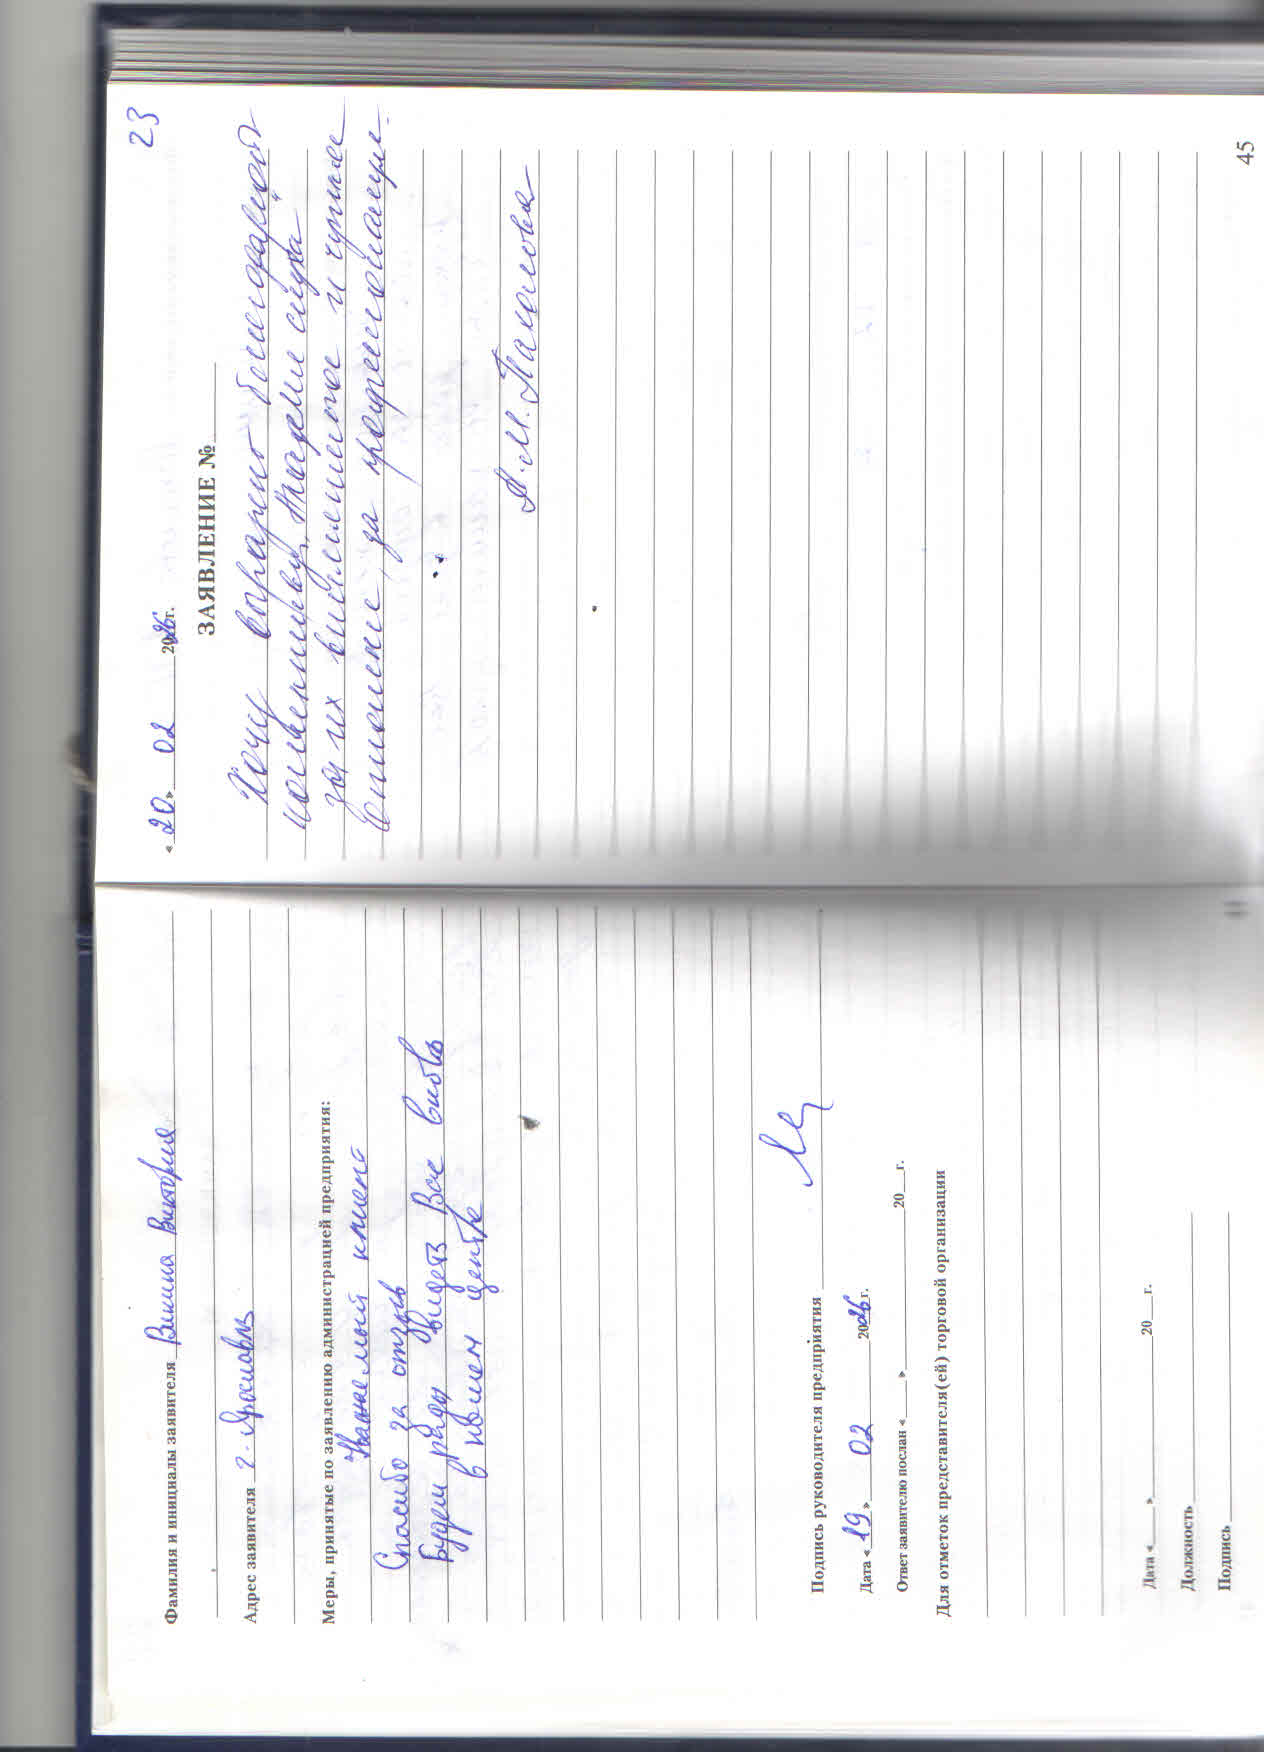 Фамилия и инициалы заявителя Викина Виктория
Адрес заявителя г. Ярославль
Меры, принятые по заявлению администрацией предприятия:
Уважаемый клиент
Спасибо за отзыв
Будем рады видеть Вас вновь
в нашем центре
Подпись руководителя предприятия
Дата « 19 » 02 2026 г.
Ответ заявителю послан «___» ___ 20__ г.
Для отметок представителя(ей) торговой организации
Дата «___» ___ 20__ г.
Должность
Подпись
23
« 20 » 02 2026 г.
ЗАЯВЛЕНИЕ №
Хочу выразить благодарность
коллективу "Академии слуха"
за их внимательное и чуткое
отношение, за профессионализм.
А.М. Пахомова
45